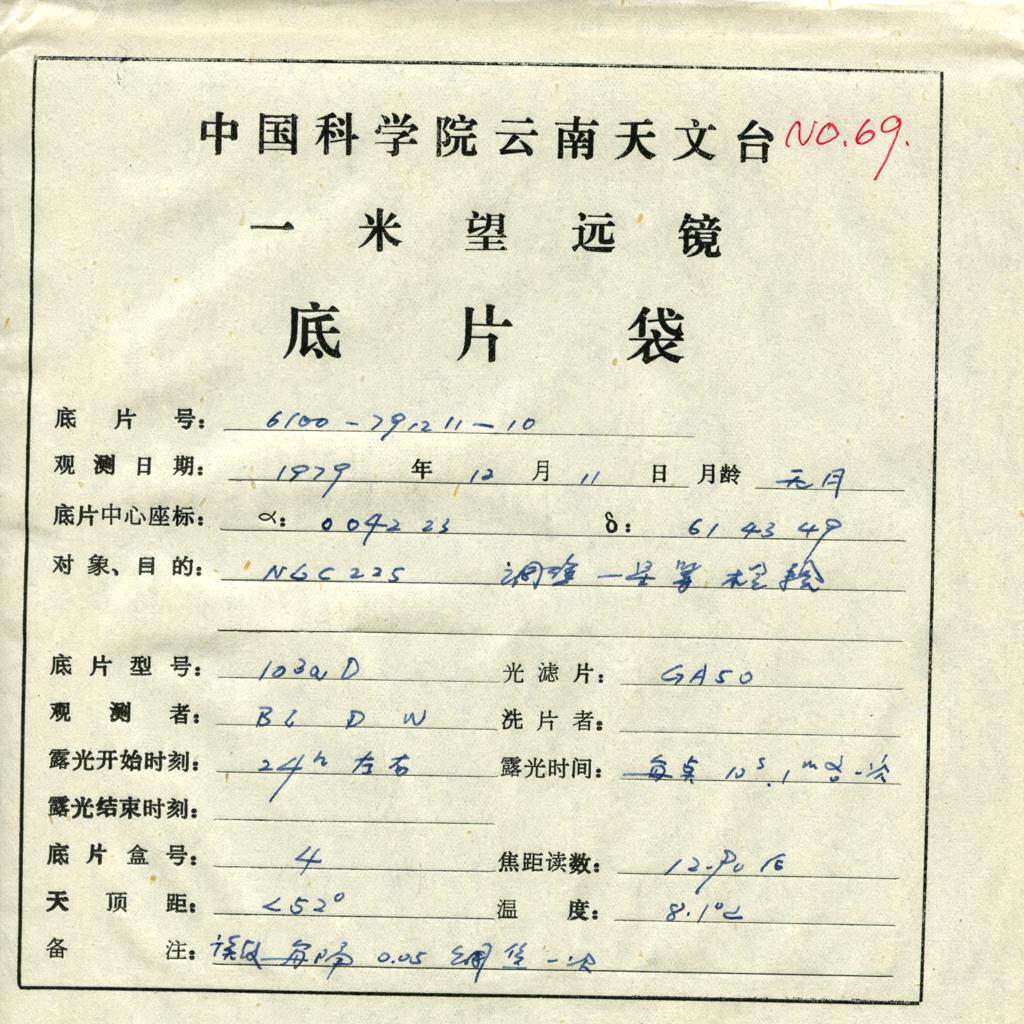 中国科学院云南天文台 NO.69.
一米望远镜
底片袋
底片号: 6100-791211-10
观测日期: 1979 年 12 月 11 日 月龄 无月
底片中心座标: α: 004223 δ: 61 43 49
对象、目的: NGC225 调焦 一星等 检验
底片型号: 103aD 光滤片: GA50
观测者: B L D W 洗片者:
露光开始时刻: 24h 左右 露光时间: 每点 10s,1m 一次
露光结束时刻:
底片盒号: 4 焦距读数:
天顶距: <52° 温度: 8.1°C
备注: 读数 每隔 0.05 调焦一次